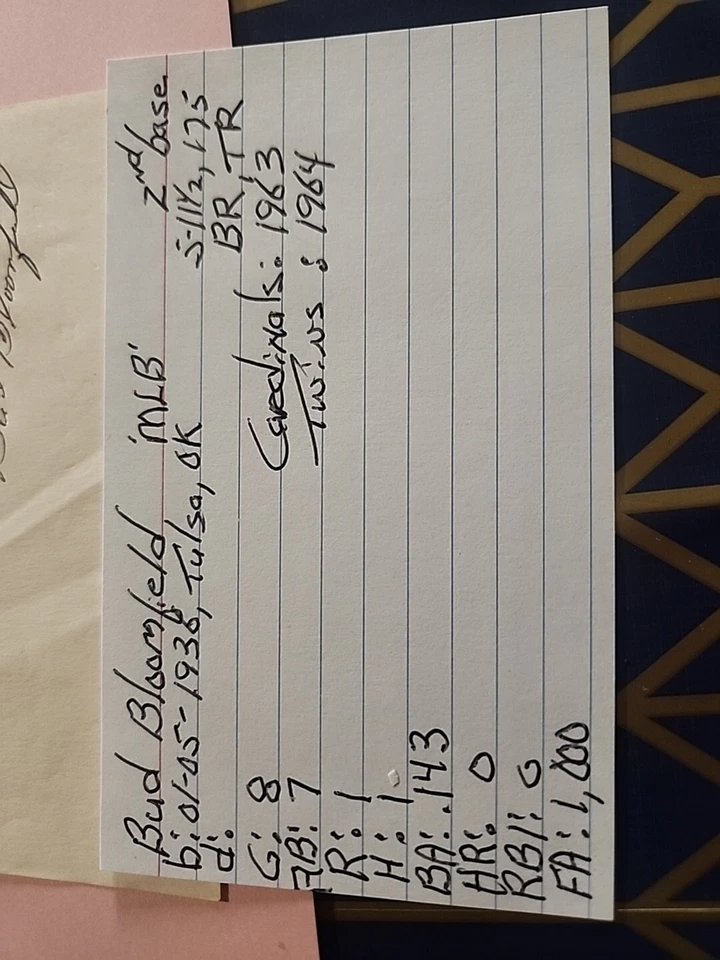 Bud Bloomfield 'MLB' 2nd base
b: 01-05-1936, Tulsa, OK 5-11 1/2, 175
d: BR, TR
G: 8 Cardinals: 1963
AB: 7 Twins: 1964
R: 1
H: 1
BA: .143
HR: 0
RBI: 0
FA: 1,000
Bloomfield